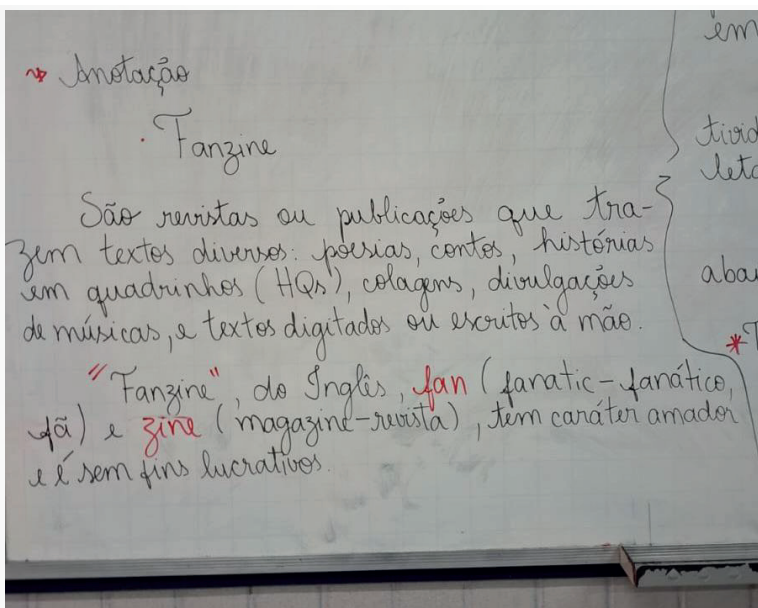 Anotação
· Fanzine
São revistas ou publicações que tra-
zem textos diversos: poesias, contos, histórias
em quadrinhos (HQs), colagens, divulgações
de músicas, e textos digitados ou escritos à mão.
"Fanzine", do Inglês, fan (fanatic-fanático,
fã) e zine (magazine-revista), tem caráter amador
e é sem fins lucrativos.
em
tivid
leta
abai
*